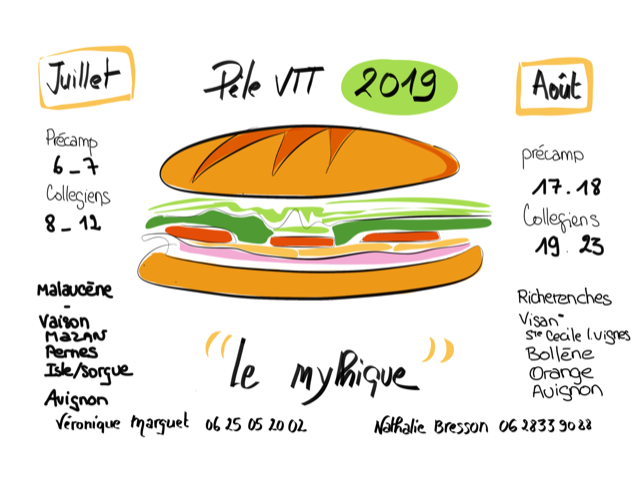 Juillet
Pélé VTT 2019
Août
Précamp
6_7
Collegiens
8_12
précamp
17.18
Collegiens
19.23
Malaucène
-
Vaison
MAZAN
Pernes
Isle/Sorgue
Avignon
Richerenches
Visan
Ste Cecile l.vignes
Bollène
Orange
Avignon
"le mythique"
Véronique Marguet 06 25 05 20 02
Nathalie Bresson 06 28 33 90 88